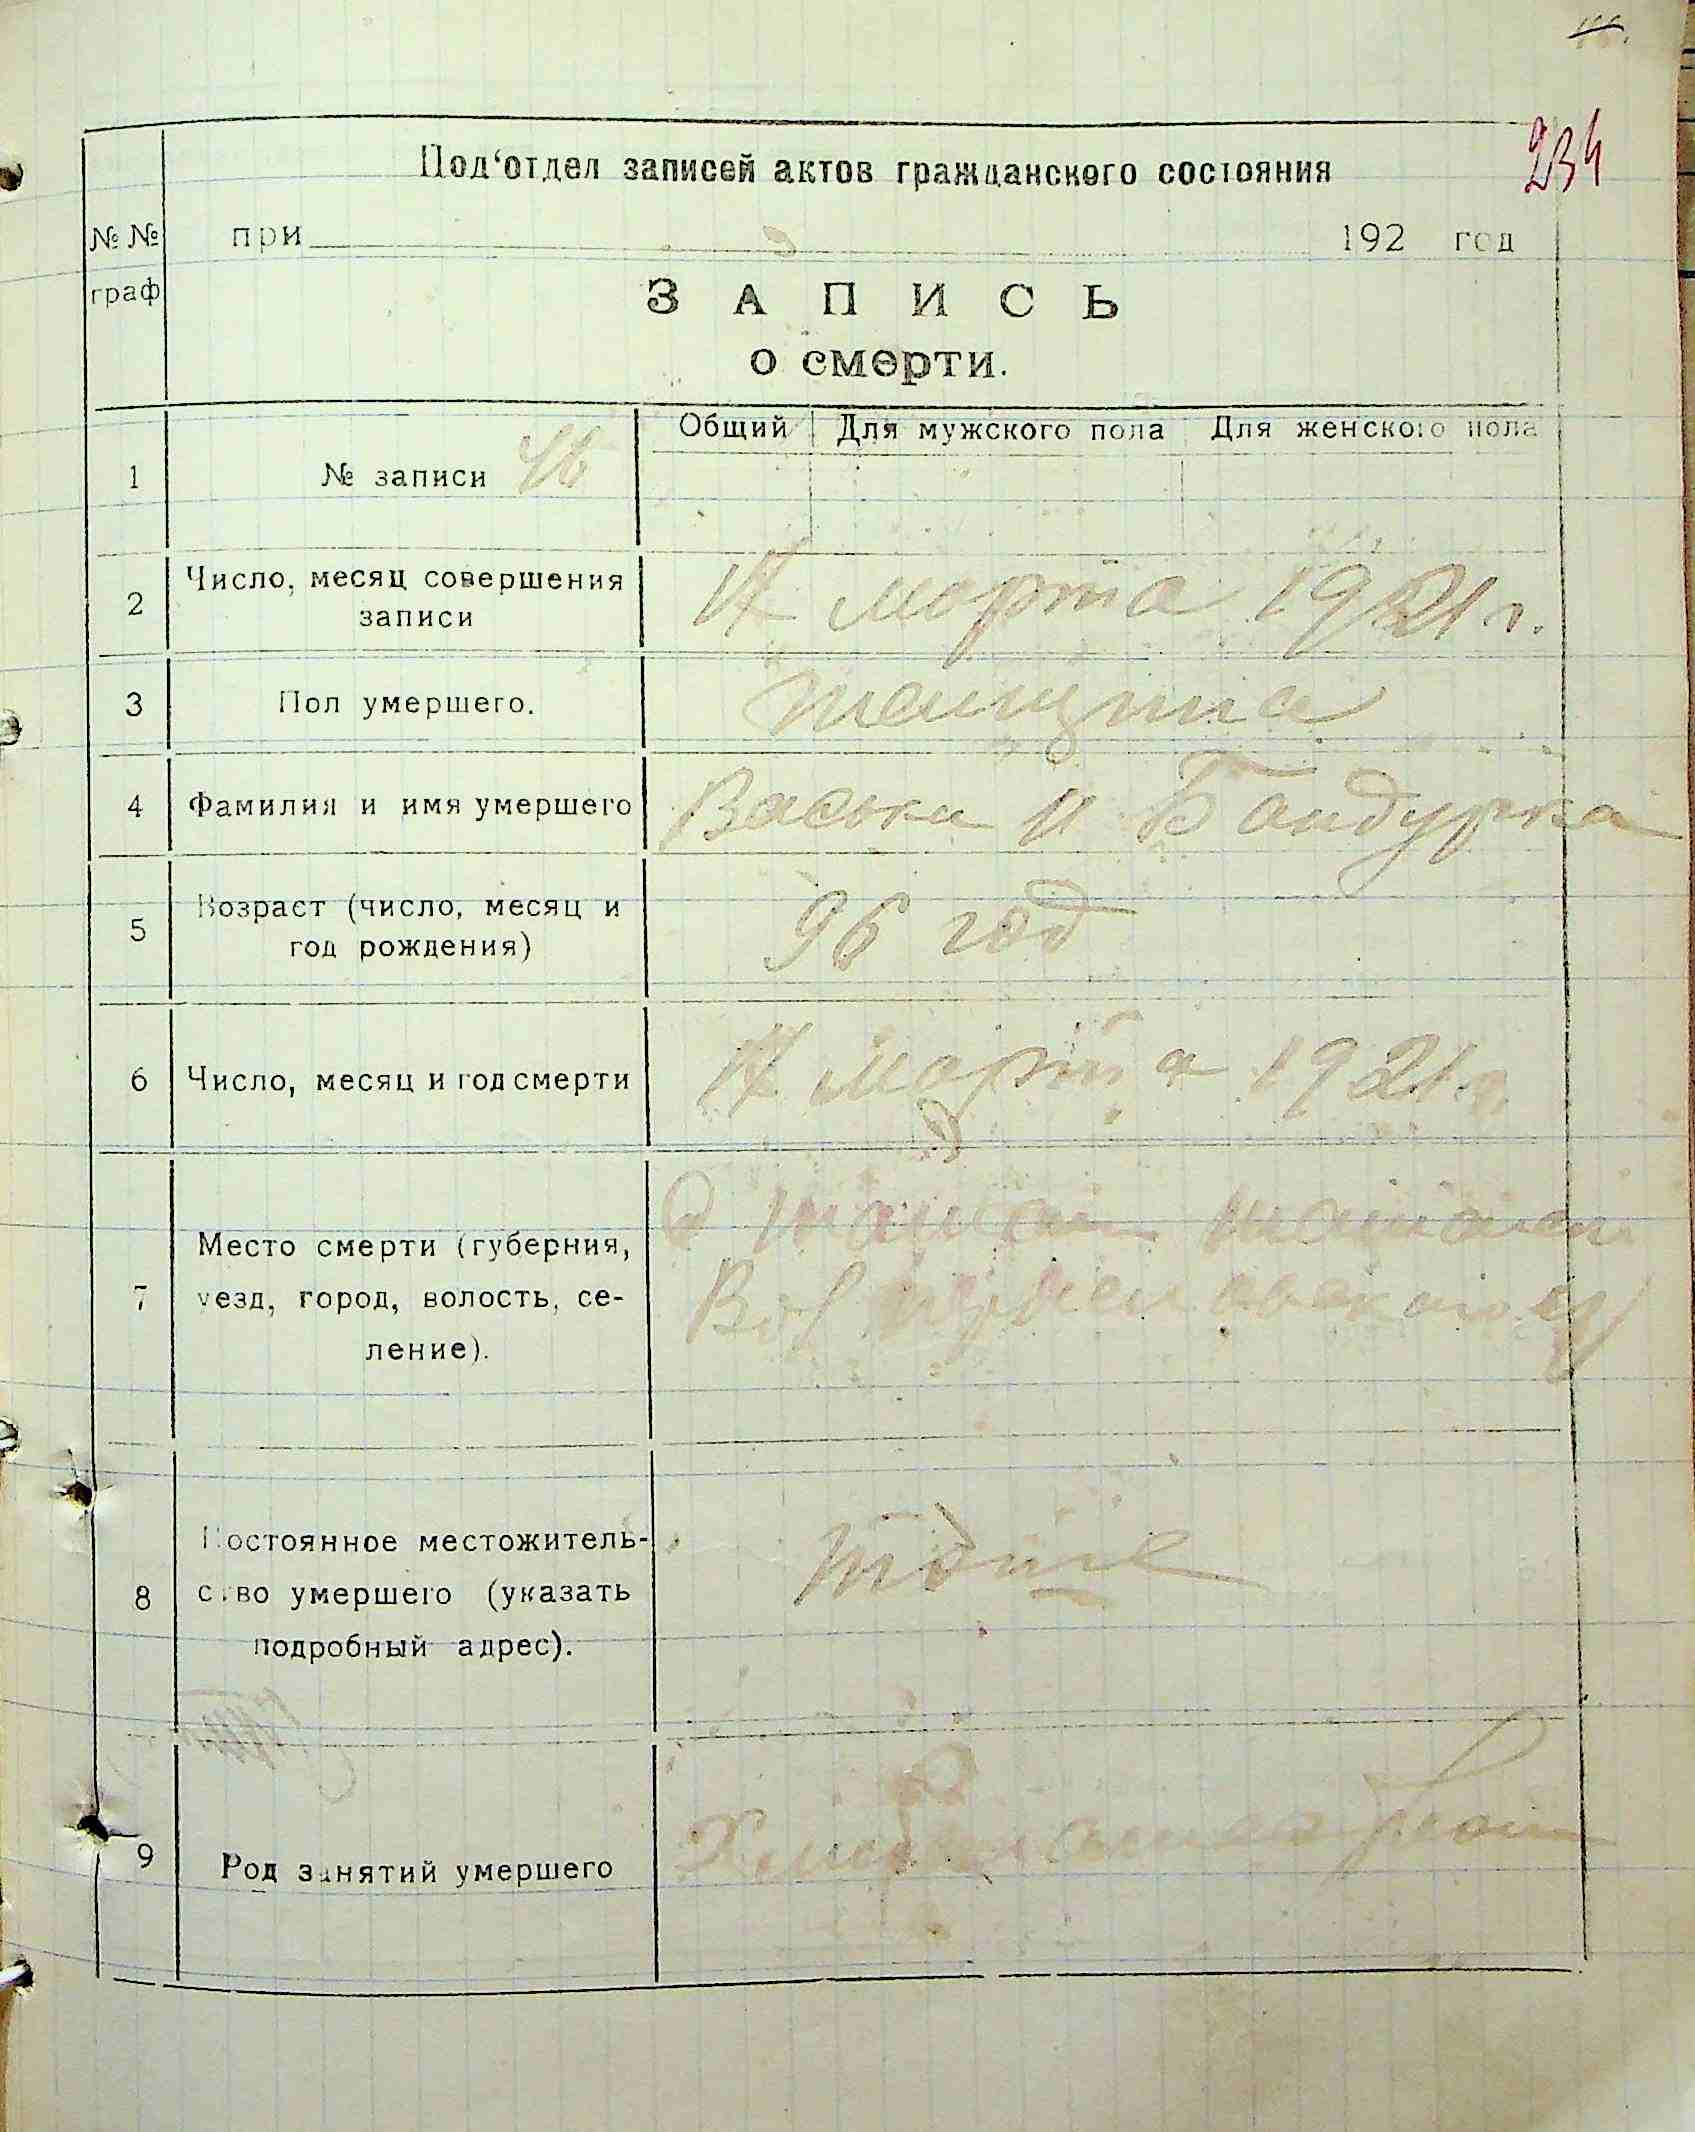 234
Под‘отдел записей актов гражданского состояния
№№ граф
при 192 год
ЗАПИСЬ
о смерти.
1 № записи 46 Общий Для мужского пола Для женского пола
2 Число, месяц совершения
записи
марта 1921 г.
3 Пол умершего. женщина
4 Фамилия и имя умершего Бандурка
5 Возраст (число, месяц и
год рождения)
96 год
6 Число, месяц и год смерти марта 1921 г.
7 Место смерти (губерния,
уезд, город, волость, се-
ление).
8 Постоянное местожитель-
ство умершего (указать
подробный адрес).
тоже
9 Род занятий умершего